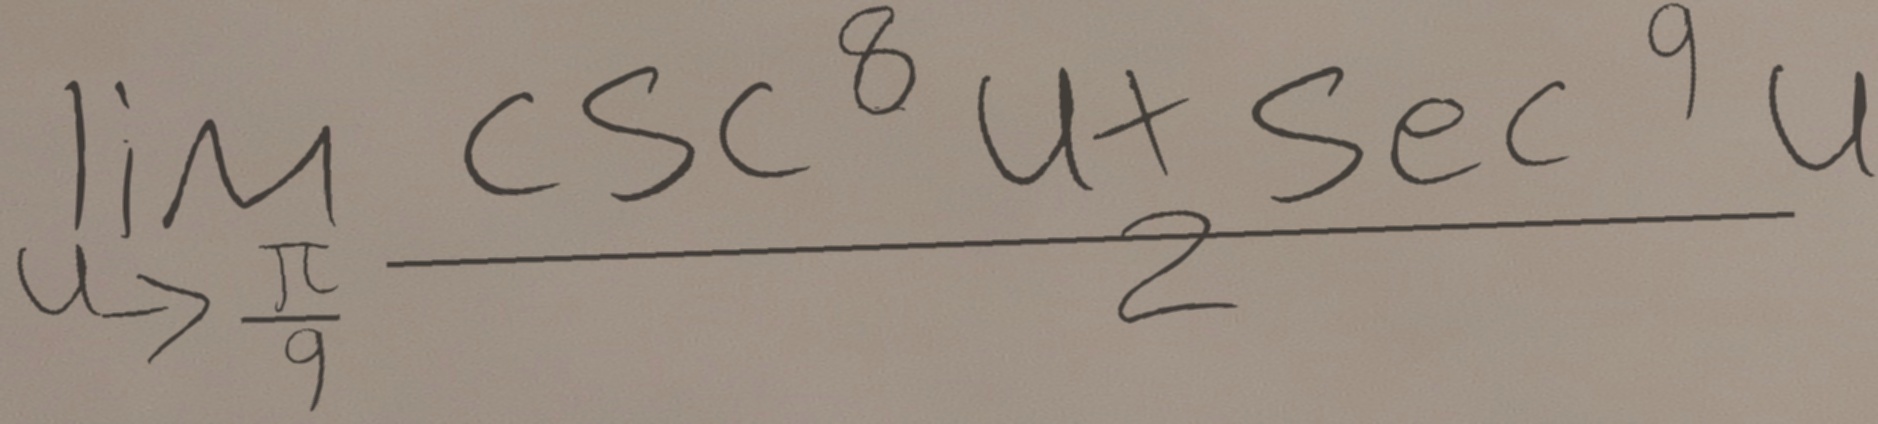 \lim_{u \to \frac{\pi}{9}} \frac{\csc^8 u + \sec^9 u}{2}